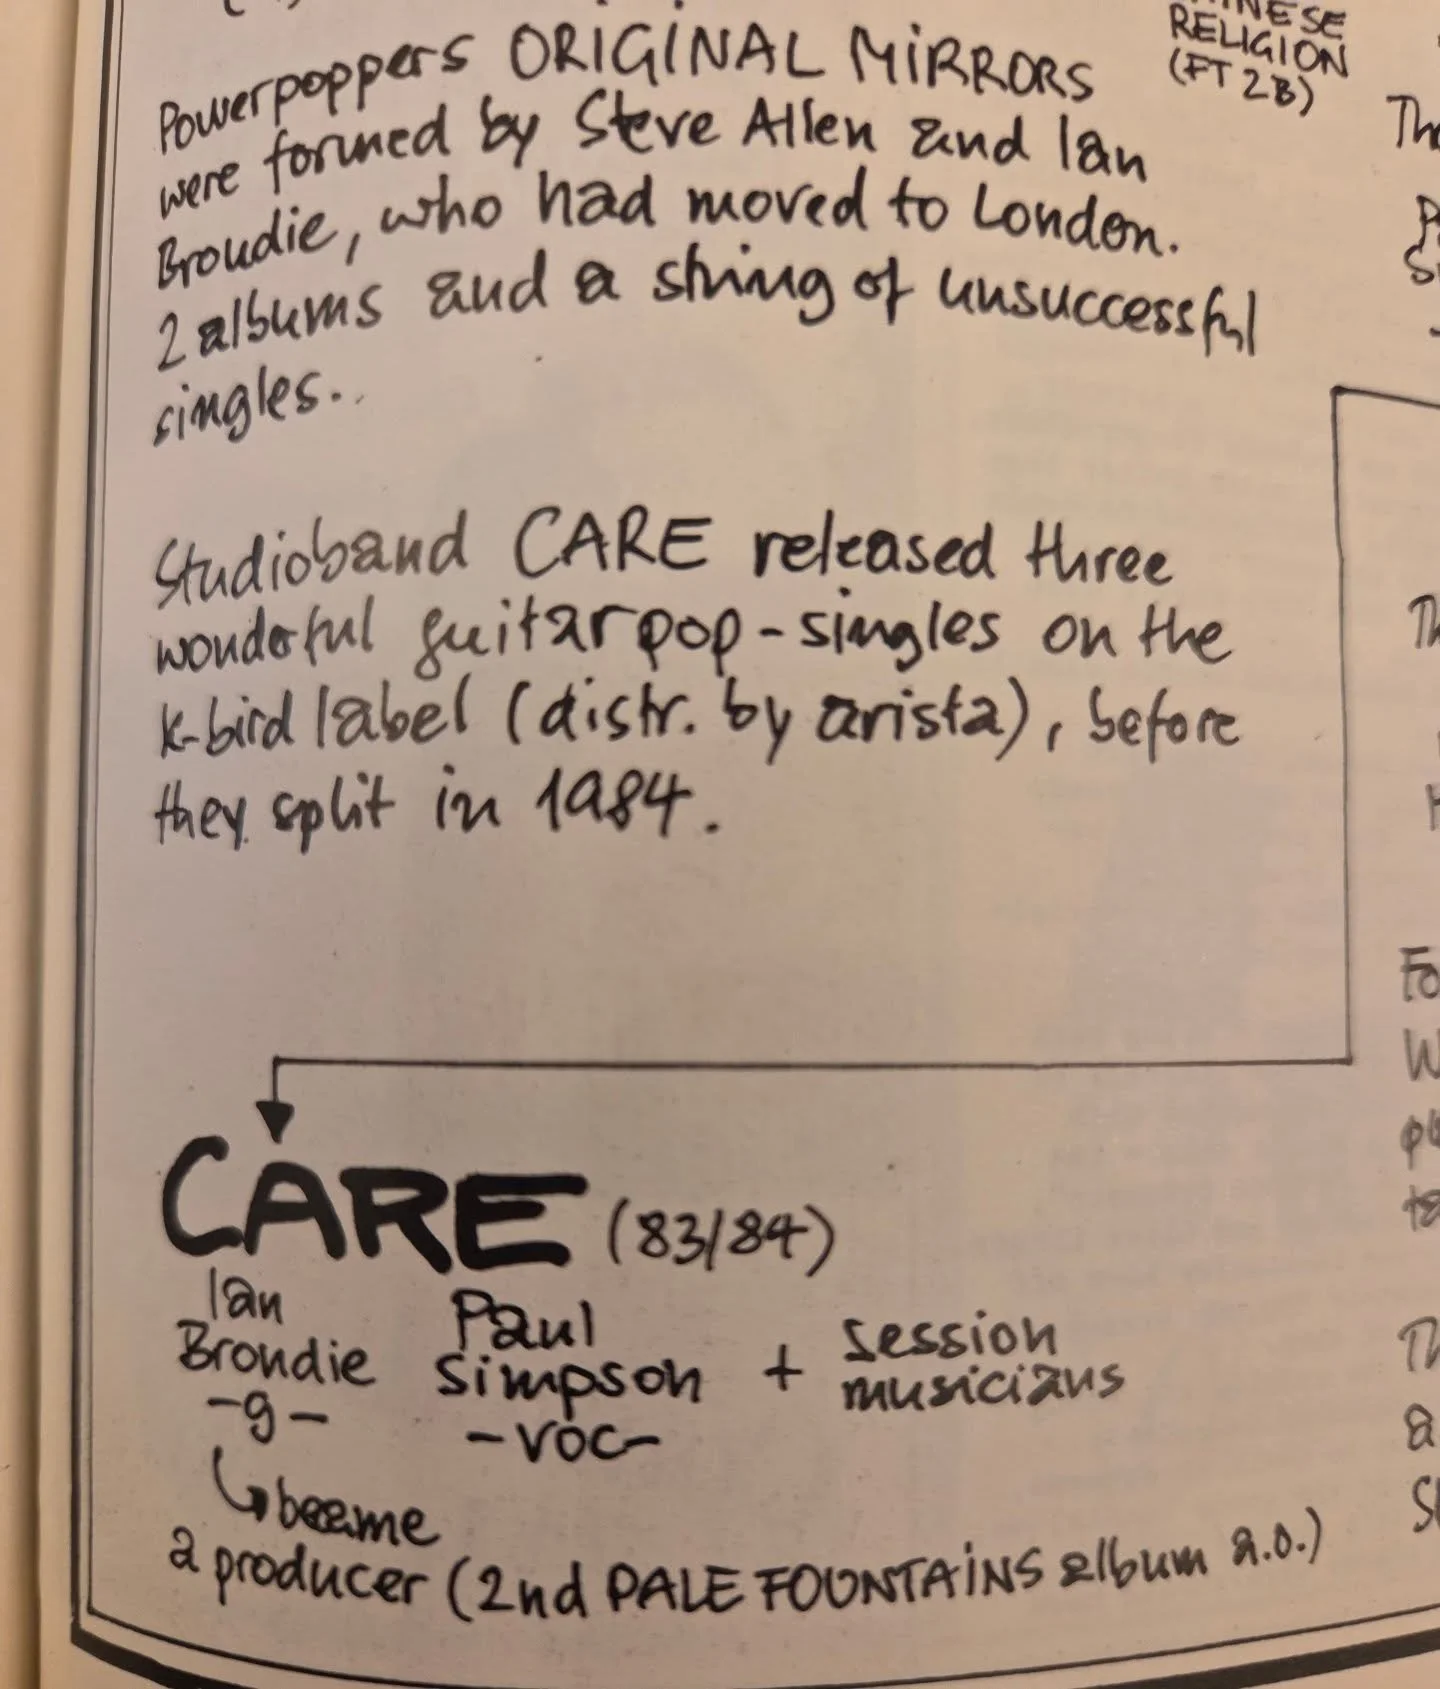 Powerpoppers ORIGINAL MIRRORS
were formed by Steve Allen and Ian
Broudie, who had moved to London.
2 albums and a string of unsuccessful
singles..
RELIGION
(FT 2B)
Studioband CARE released three
wonderful guitarpop-singles on the
k-bird label (distr. by arista), before
they split in 1984.
CARE (83/84)
Ian
Broudie
-g-
Paul
Simpson
-voc-
+ session
musicians
became
a producer (2nd PALE FOUNTAINS album a.o.)